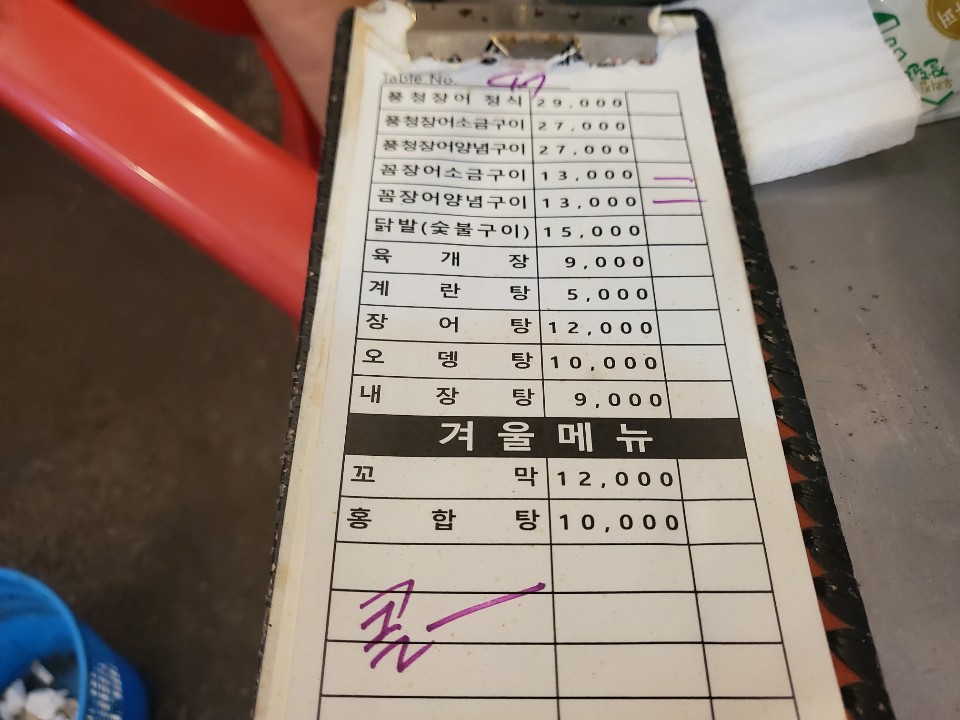 Table No.
풍청장어 정식 29,000
풍청장어소금구이 27,000
풍청장어양념구이 27,000
꼼장어소금구이 13,000 一
꼼장어양념구이 13,000 一
닭발(숯불구이) 15,000
육개장 9,000
계란탕 5,000
장어탕 12,000
오뎅탕 10,000
내장탕 9,000
겨울메뉴
꼬막 12,000
홍합탕 10,000
콜 一